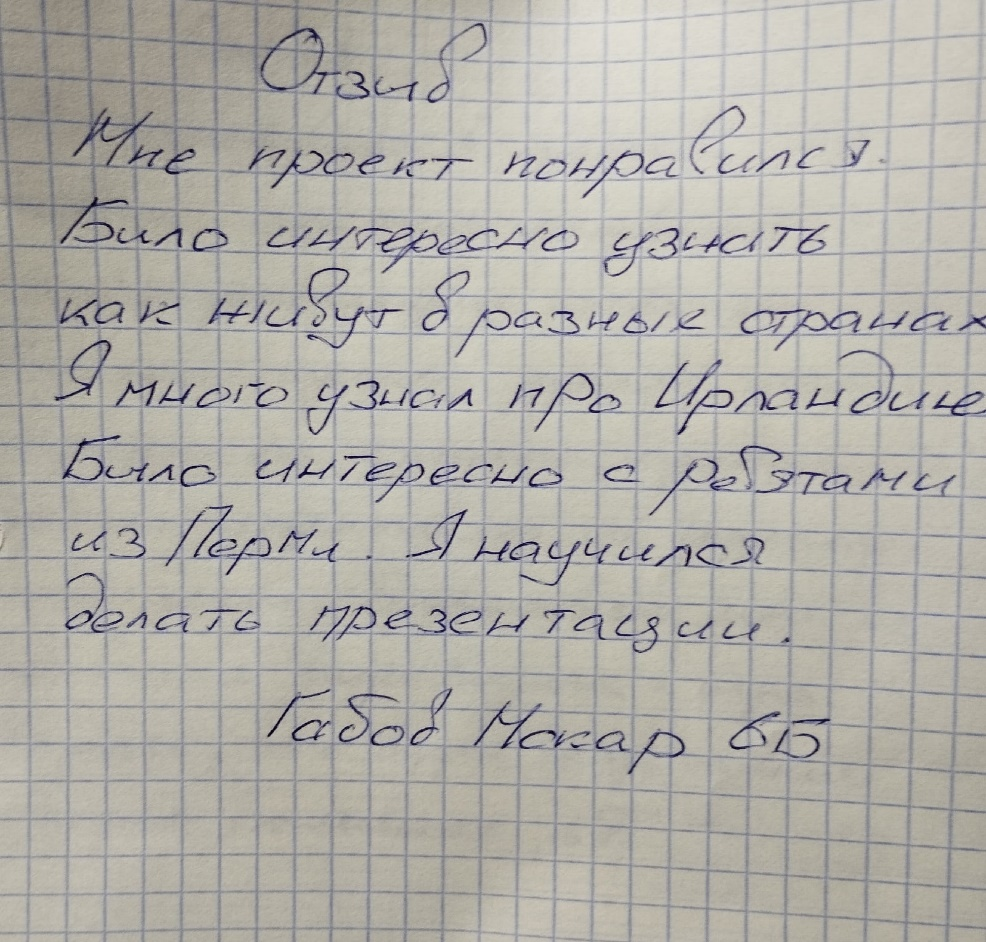 Отзив
Мне проект понравился.
Било интересно узнать
как живут в разные странах
Я много узнал про Ирландию
Било интересно с ребятами
из Перми. Я научился
делать презентации.
Габов Макар 6Б